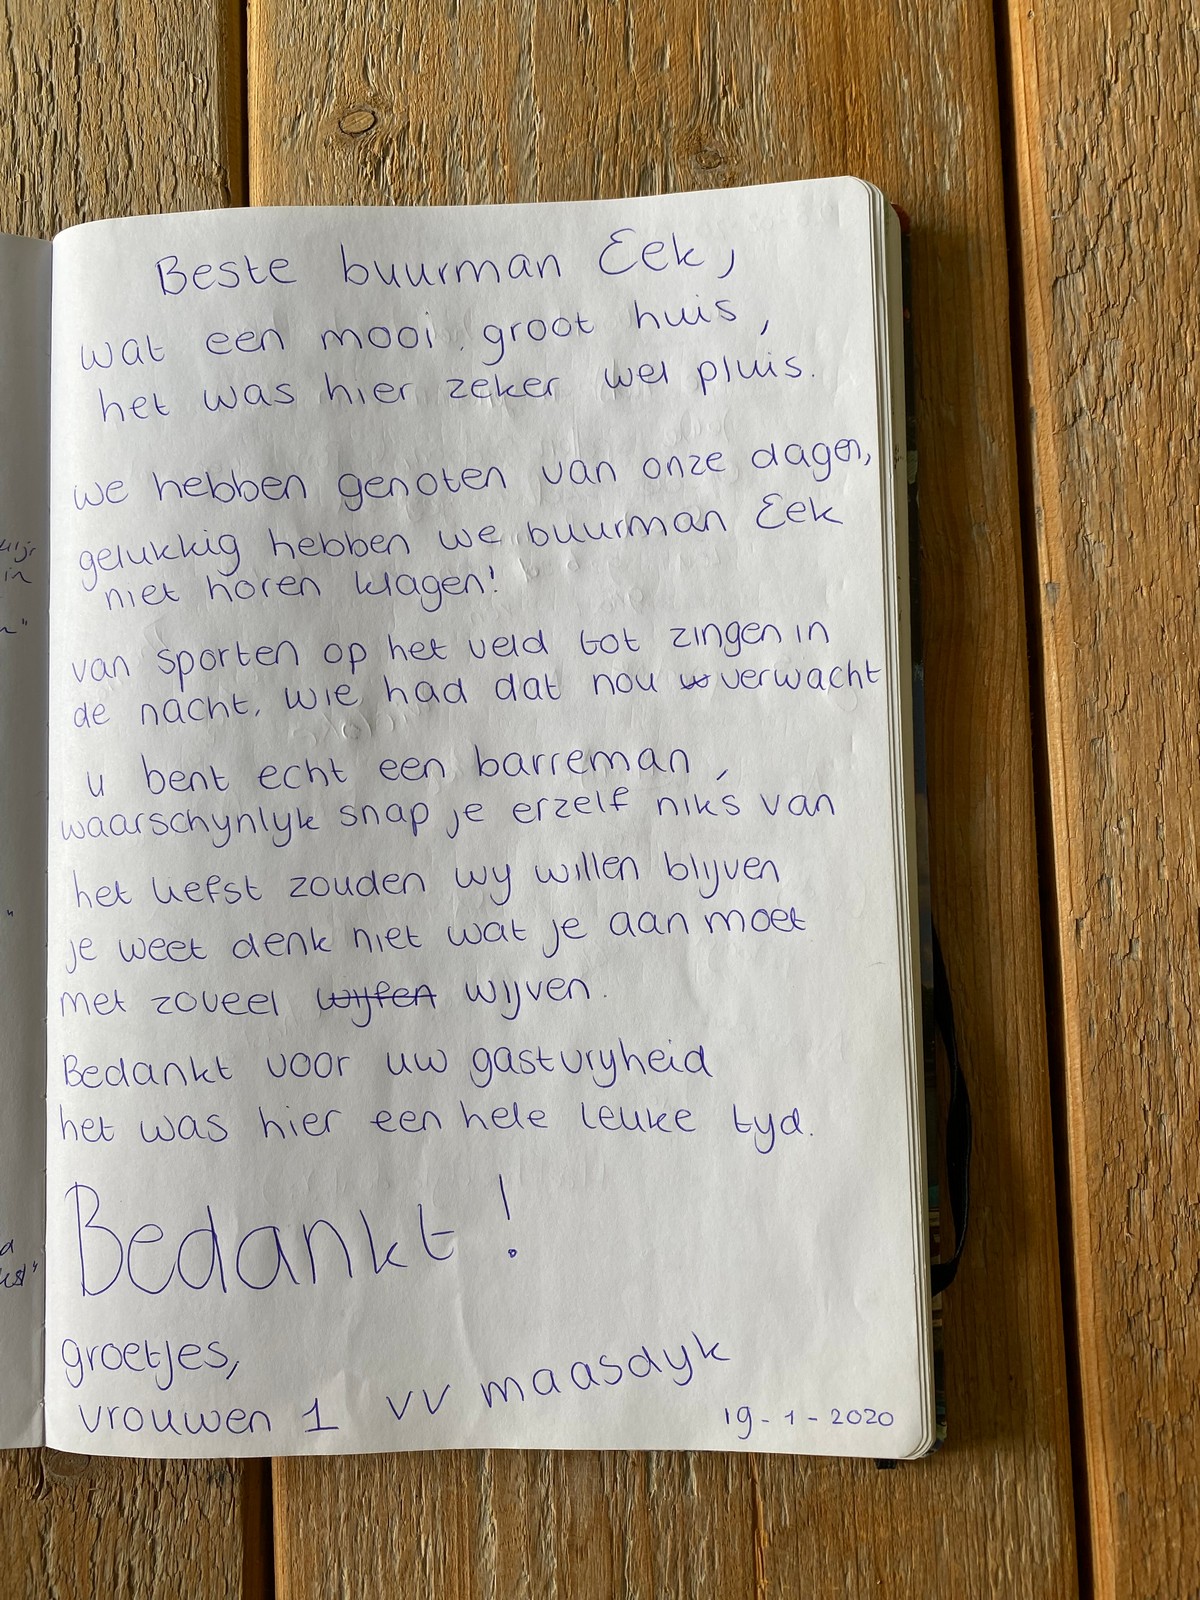 Beste buurman Eek,
wat een mooi groot huis,
het was hier zeker wel pluis.
we hebben genoten van onze dagen,
gelukkig hebben we buurman Eek
niet horen klagen!
van sporten op het veld tot zingen in
de nacht, wie had dat nou verwacht
u bent echt een barreman,
waarschynlyk snap je erzelf niks van
het liefst zouden wy willen blijven
je weet denk niet wat je aan moet
met zoveel wijfen wijven.
Bedankt voor uw gastvryheid
het was hier een hele leuke tyd.
Bedankt!
groetjes,
vrouwen 1 vv maasdyk
19-1-2020